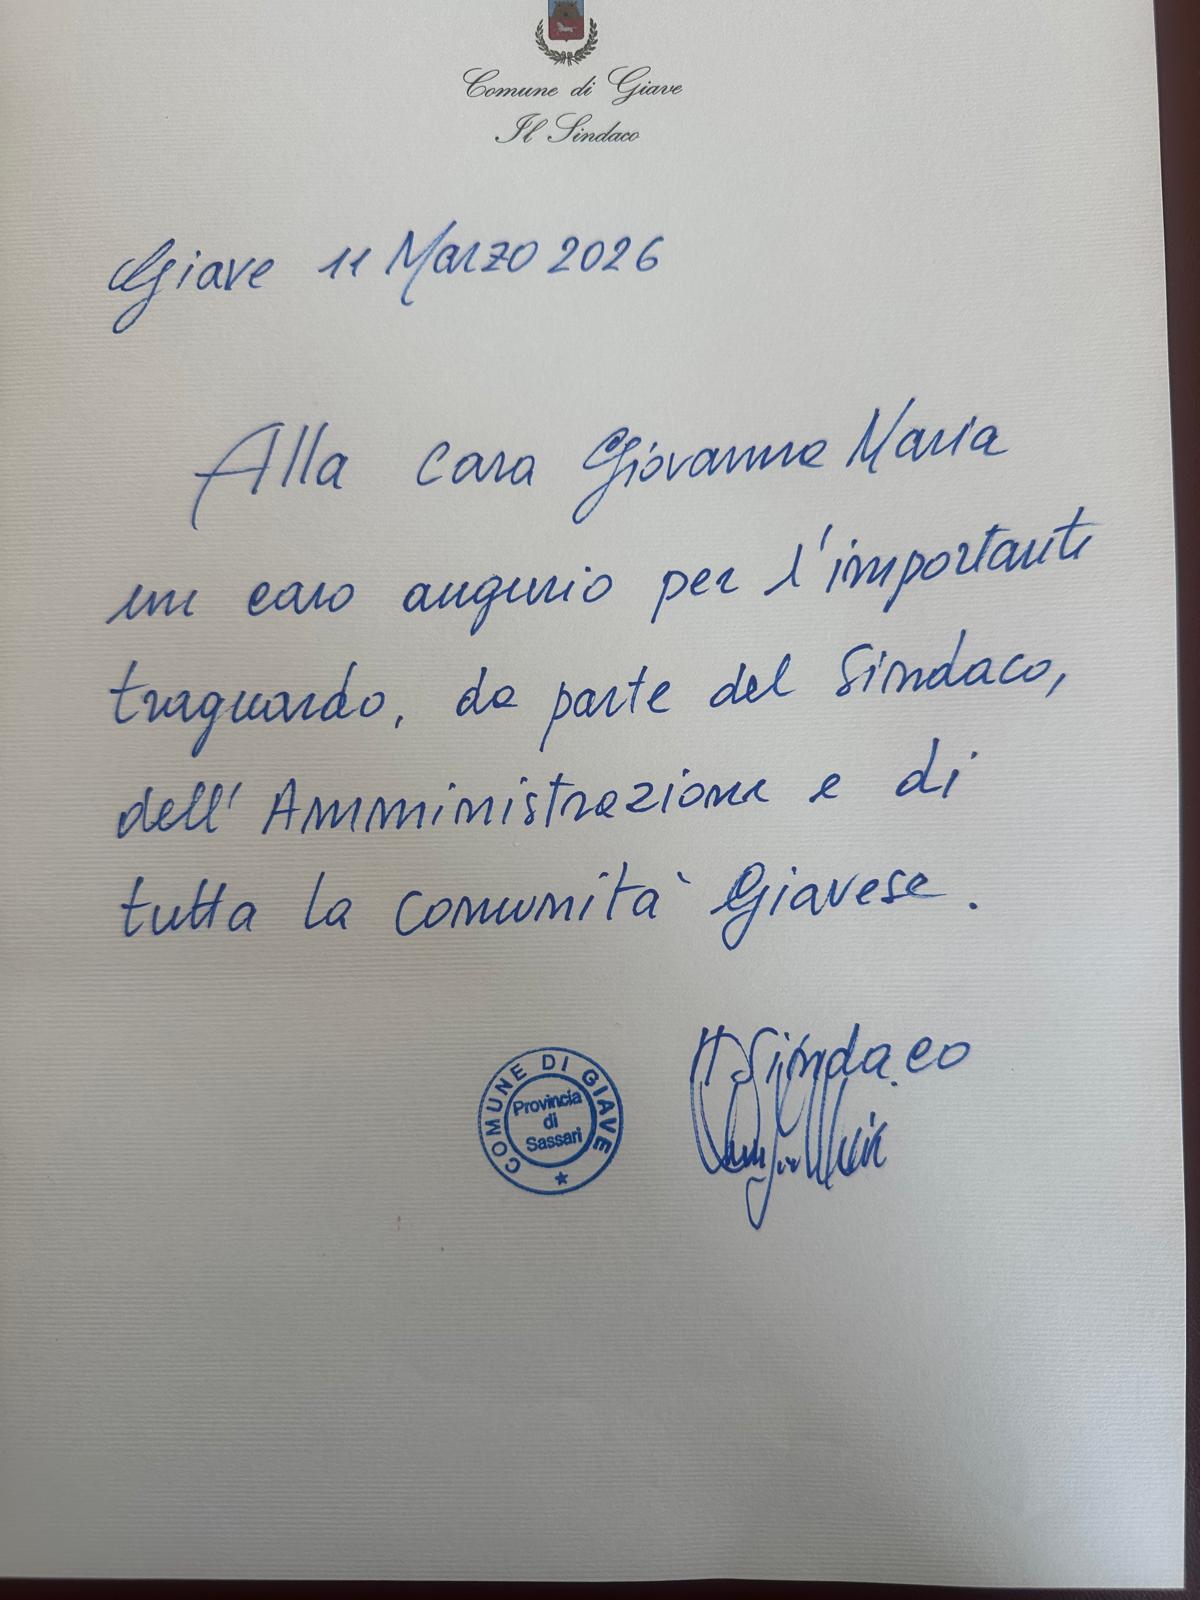 Comune di Giave
Il Sindaco
Giave 11 Marzo 2026
Alla cara Giovanna Maria
un caro augurio per l'importante
traguardo, da parte del Sindaco,
dell'Amministrazione e di
tutta la comunità Giavese.
Il Sindaco
COMUNE DI GIAVE
Provincia
di
Sassari